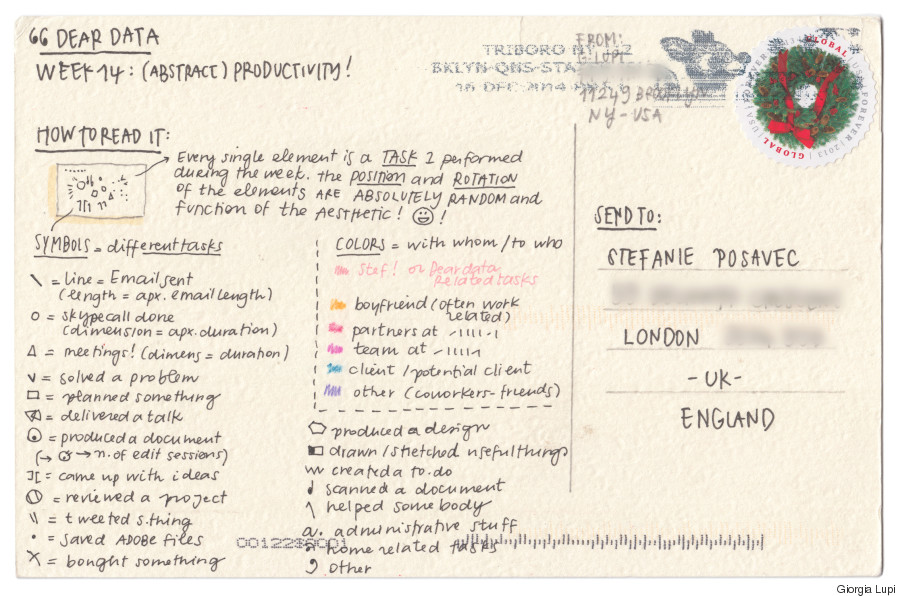 GG DEAR DATA
WEEK 14: (ABSTRACT) PRODUCTIVITY!
FROM:
G. LUPI
11249 BROOKLYN
NY-USA
TRIBORO NY
BKLYN-QNS-STA
16 DEC 2014
GLOBAL USA FOREVER 2013
GLOBAL
HOW TO READ IT:
Every single element is a TASK I performed
during the week. the POSITION and ROTATION
of the elements ARE ABSOLUTELY RANDOM and
function of the AESTHETIC! !
SYMBOLS = different tasks
\ = line = Email sent
(length = apx. email length)
O = skype call done
(dimension = apx. duration)
Δ = meetings! (dimens = duration)
v = solved a problem
□ = planned something
= delivered a talk
= produced a document
(→ → n. of edit sessions)
][ = came up with ideas
= reviewed a project
\\ = tweeted s.thing
• = saved ADOBE files
X = bought something
COLORS = with whom / to who
Stef! or Dear data
Related tasks
boyfriend (often work
related)
partners at
team at
client / potential client
other (coworkers-friends)
produced a design
drawn / stretched useful things
created a to.do
scanned a document
helped somebody
a. administrative stuff
home related tasks
other
SEND TO:
STEFANIE POSAVEC
LONDON
-UK-
ENGLAND
Giorgia Lupi